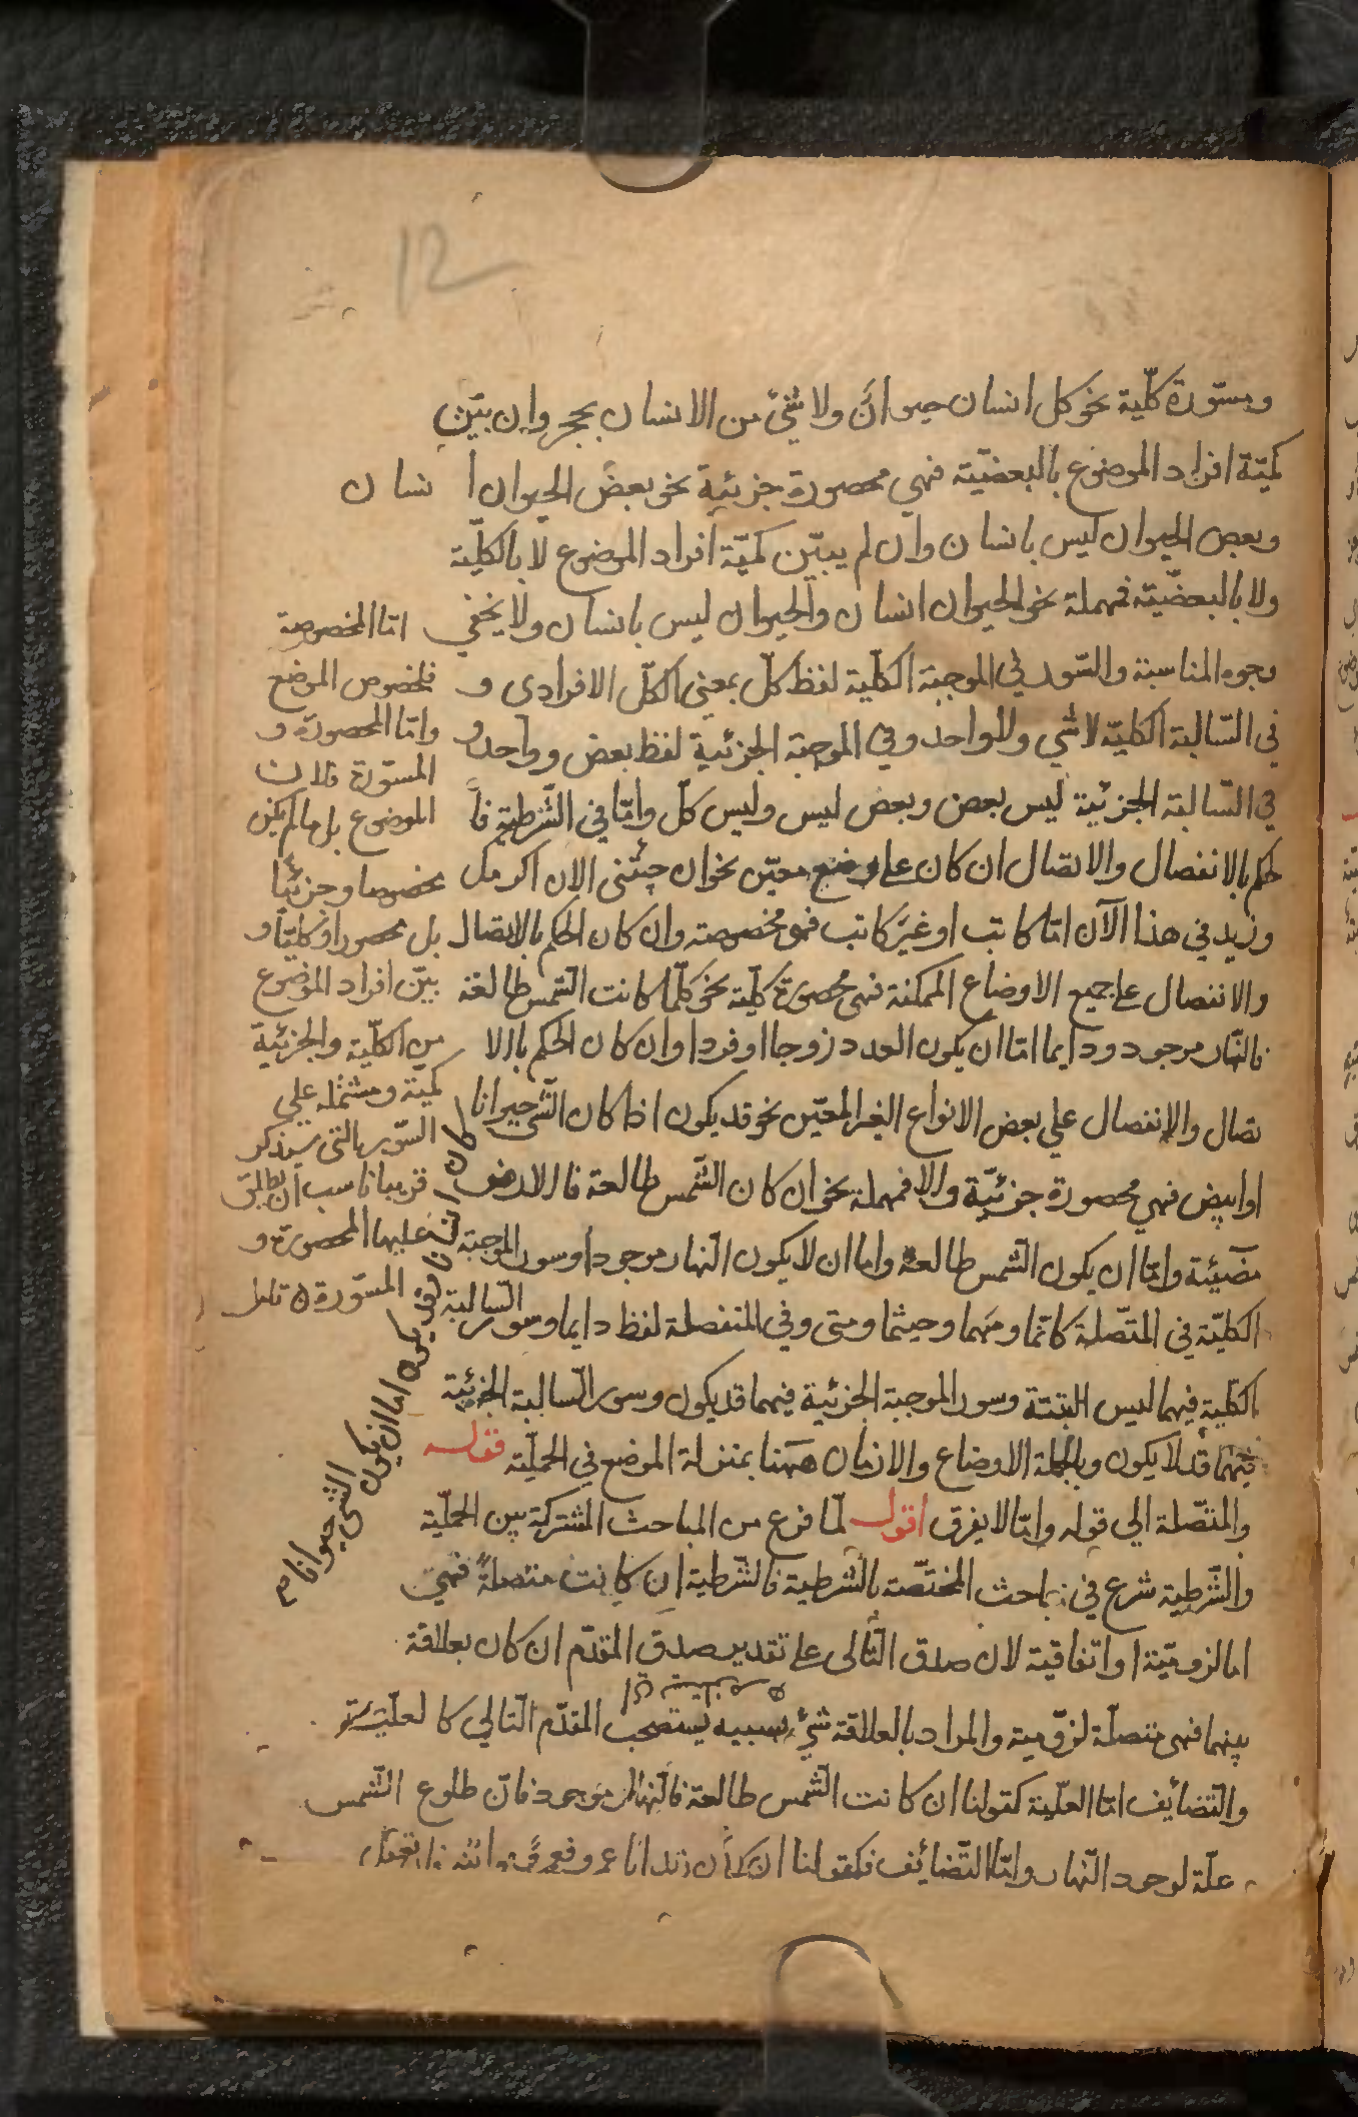 12
ومسوّرة كلّية نحو كل انسان حيوان ولا شئ من الانسان بحجر وان بيّن
كميّة افراد الموضوع بالبعضيّة فهي محصورة جزئية نحو بعض الحيوان انسان
وبعض الحيوان ليس بانسان وان لم يبيّن كميّة افراد الموضوع لا بالكلّية
ولا بالبعضيّة فمهملة نحو الحيوان انسان والحيوان ليس بانسان ولا يخفي
وجوه المناسبة والسّور في الموجبة الكلّية لفظ كلّ بمعني الكلّ الافرادى و
في السّالبة الكليّة لا شي ولا واحد وفي الموجبة الجزئية لفظ بعض وواحد و
في السّالبة الجزئية ليس بعض وبعض ليس وليس كلّ وامّا في الشّرطية فا
لحكم بالانفصال والاتصال ان كان على وضع معيّن نحو ان جئتنى الان اكرمك
وزيد في هذا الآن امّا كاتب او غير كاتب فهو مخصوصة وان كان الحكم بالاتصال
والانفصال على جميع الاوضاع الممكنة فهى محصورة كلّية نحو كلّما كانت الشّمس طالعة
فالنّهار موجود ودايما امّا ان يكون العدد زوجا او فردا وان كان الحكم بالا
تصال والانفصال علي بعض الانواع الغير المعيّن نحو قد يكون اذا كان الشّئ حيوانا
او ابيض فهي محصورة جزئيّة والا فمهملة نحو ان كان الشّمس طالعة فالارض
مضيئة وامّا ان يكون الشّمس طالعة واما ان لا يكون النّهار موجودا وسور الموجبة
الكليّة في المتّصلة كلّما ومهما وحيثما ومتى وفي المنفصلة لفظ دايما وسور السّالبة
الكلّية فيهما ليس البتّة وسور الموجبة الجزئية فيهما قد يكون وسور السّالبة الجزئية
فيهما قد لا يكون وبالجملة الاوضاع والازمان ههنا بمنزلة الموضع في الحمليّة قوله
والمتّصلة الي قوله وامّا لا يفرق اقول لمّا فرغ من المباحث المشتركة بين الحمليّة
والشّرطية شرع في مباحث المختصّة بالشّرطية فالشّرطية ان كانت متصلة فهي
اما لزوميّة او اتفاقية لان صدق التّالى على تقدير صدق المقدّم ان كان بعلاقة
بينهما فهى متصلة لزوّمية والمراد بالعلاقة شئ بسببه يستصحب المقدّم التّالي كالعليّة
والتّضائف امّا العلّية كقولنا ان كانت الشّمس طالعة فالنّهار موجود فانّ طلوع الشّمس
علّة لوجود النّهار وامّا التّضائف فكقولنا ان كان زيد ابا عمرو فعمرو ابنه
امّا المخصوصة
فلخصوص الموضع
وامّا المحصورة و
المسوّرة فلان
الموضوع بل ما لم يكن
مخصوصا وجزئيّا
بل محصورا وكليّا و
بيّن افراد الموضوع
من الكلّية والجزئية
كمية ومشتملة علي
السّور التى سيذكر
قريبا ناسب ان يطلق
عليها المحصورة و
المسوّرة تامل
اما ان يكون
الشئ حيوانا